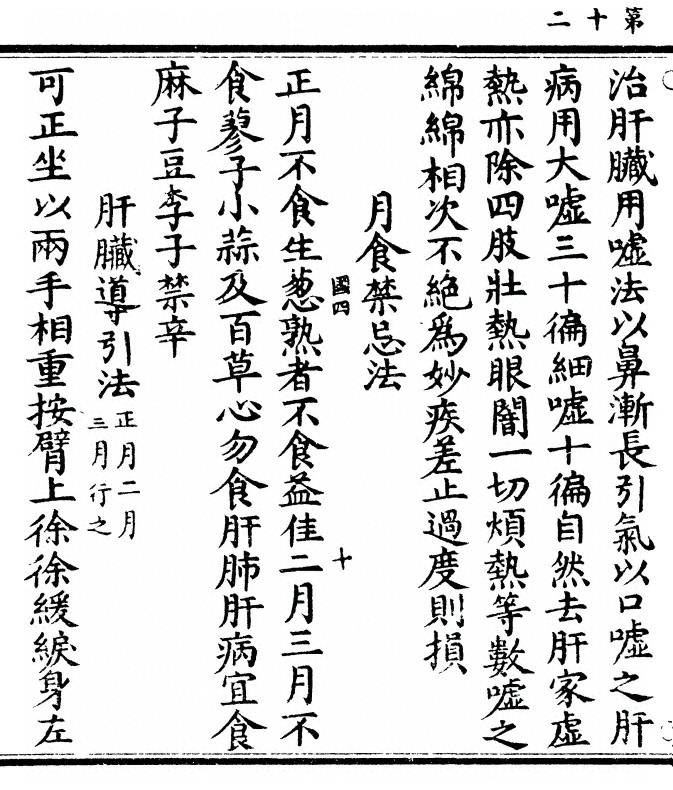 第十二
治肝臟用噓法以鼻漸長引氣以口噓之肝
病用大噓三十徧細噓十徧自然去肝家虛
熱亦除四肢壯熱眼闇一切煩熱等數噓之
綿綿相次不絕爲妙疾差止過度則損
月食禁忌法
國四
十
正月不食生葱熟者不食益佳二月三月不
食蓼子小蒜及百草心勿食肝肺肝病宜食
麻子豆李子禁辛
肝臟導引法正月二月
三月行之
可正坐以兩手相重按臂上徐徐緩綟身左